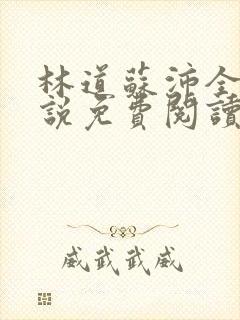 林道蘇沛全
說免費閱讀
威武武威